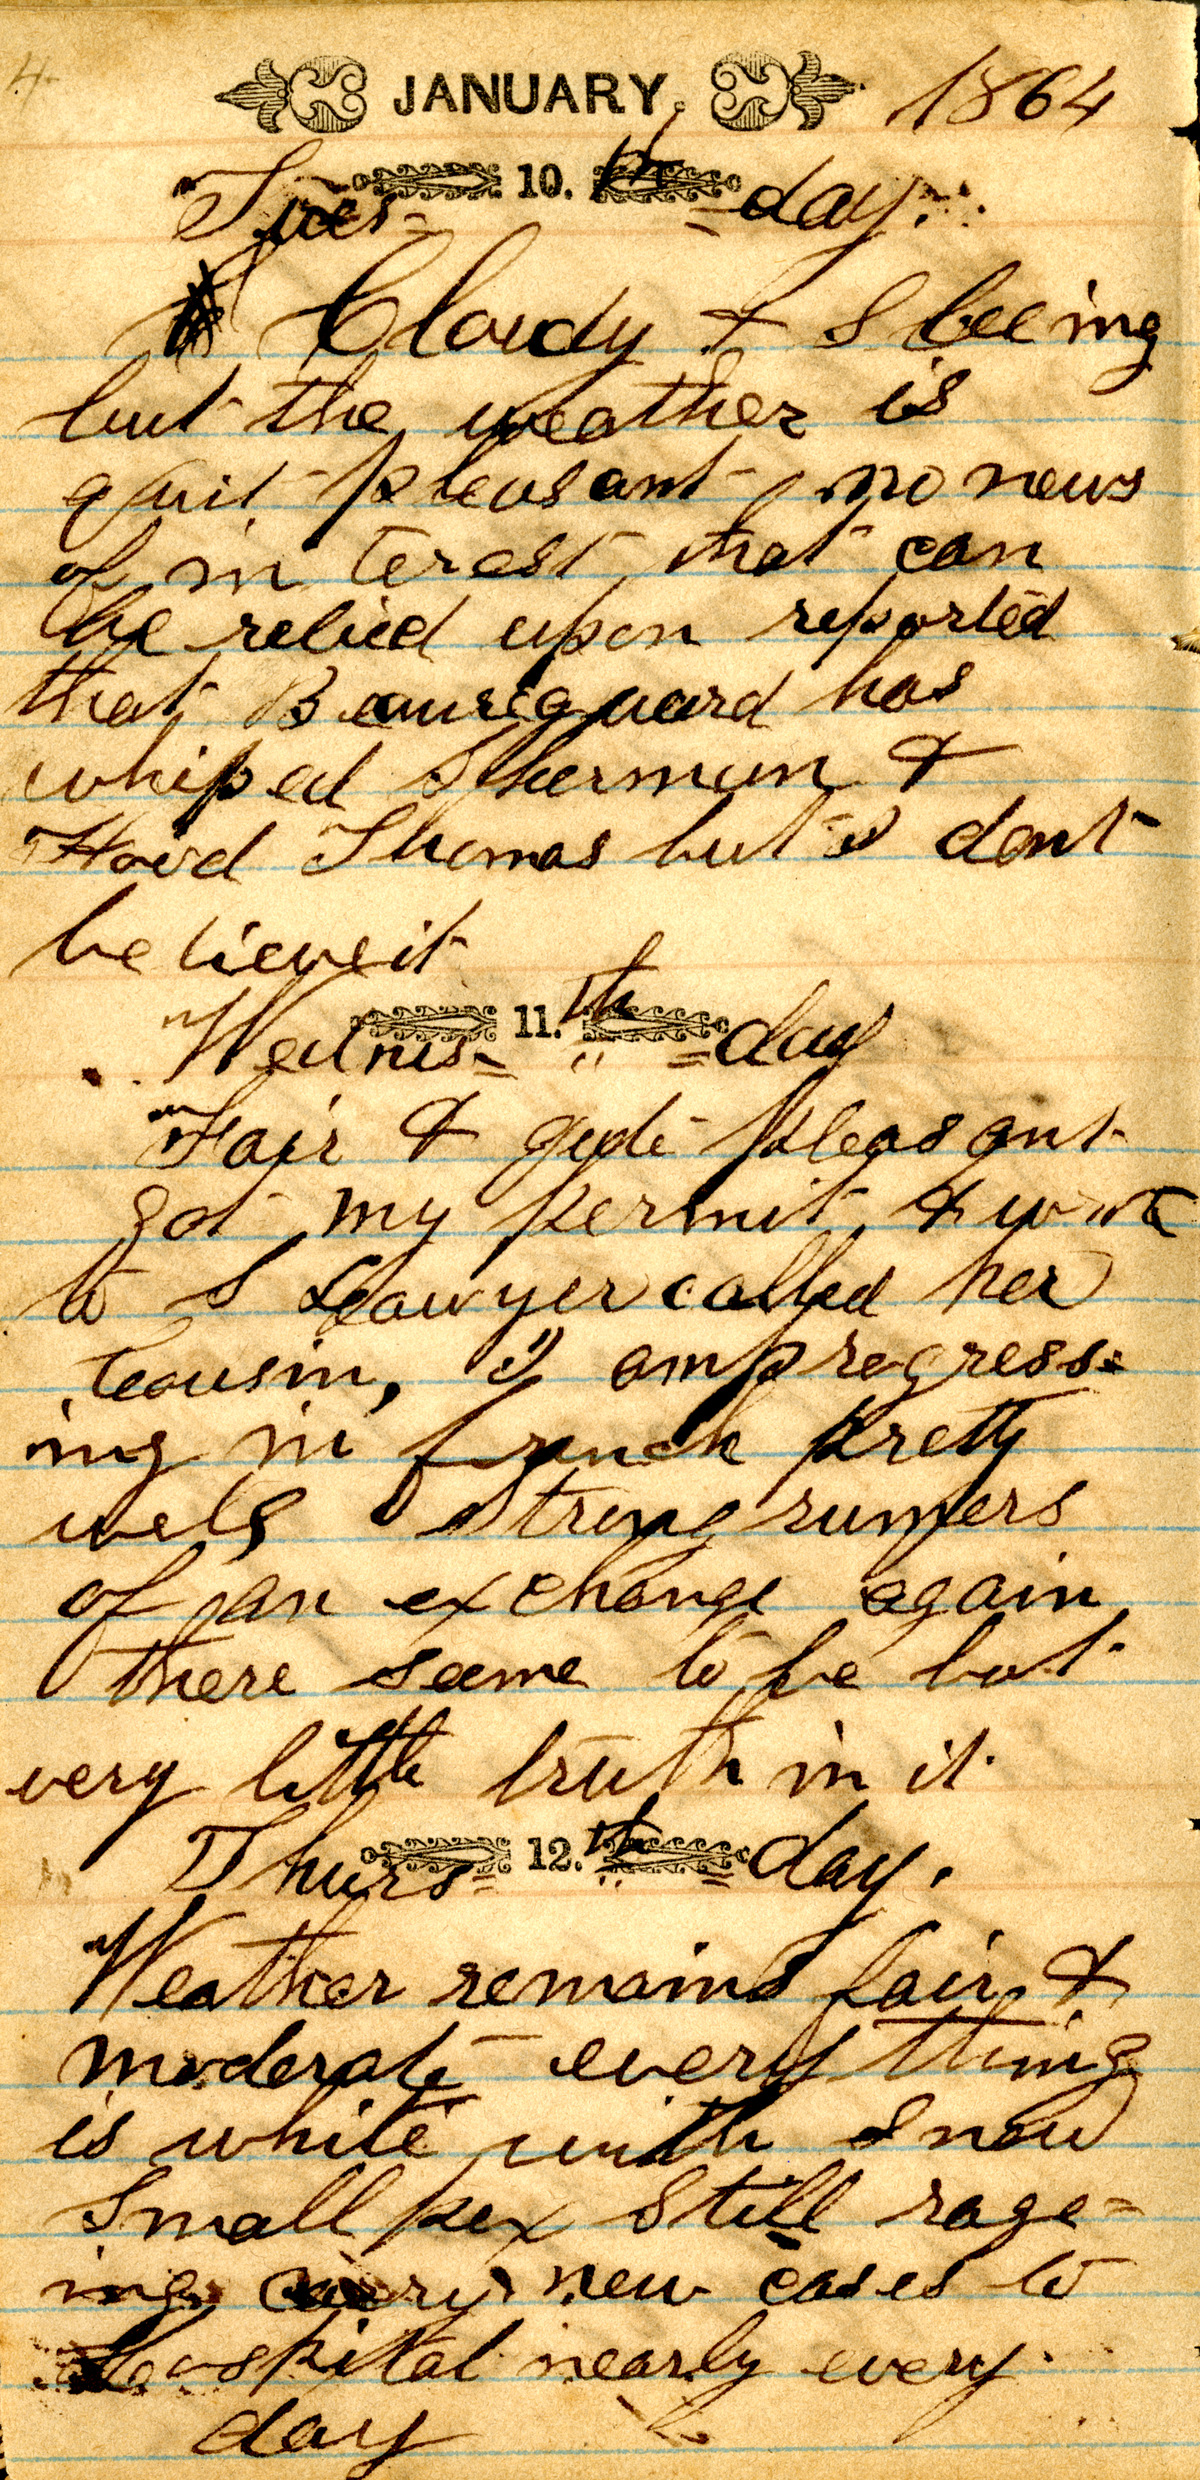 4
JANUARY. 1864
Tues- 10. th =day.
Cloudy & Sleeing
but the weather is
quit pleasant no news
of in terest that can
be relied upon reported
that Beaureguard has
whiped Sherman &
Hood Thomas but I dont
be lieve it
Wednis- 11. th =day
Fair & quite pleasant
got my permit & wrote
to S Sawyer called her
Cousin, I am progress
ing in french pretty
well Strong rumers
of an exchange again
there seeme to be but
very little truth in it
Thurs= 12. th =day.
Weather remains fair &
moderate every thing
is white with snow
Small pox Still rage=
ing carry new cases to
hospital nearly every
day